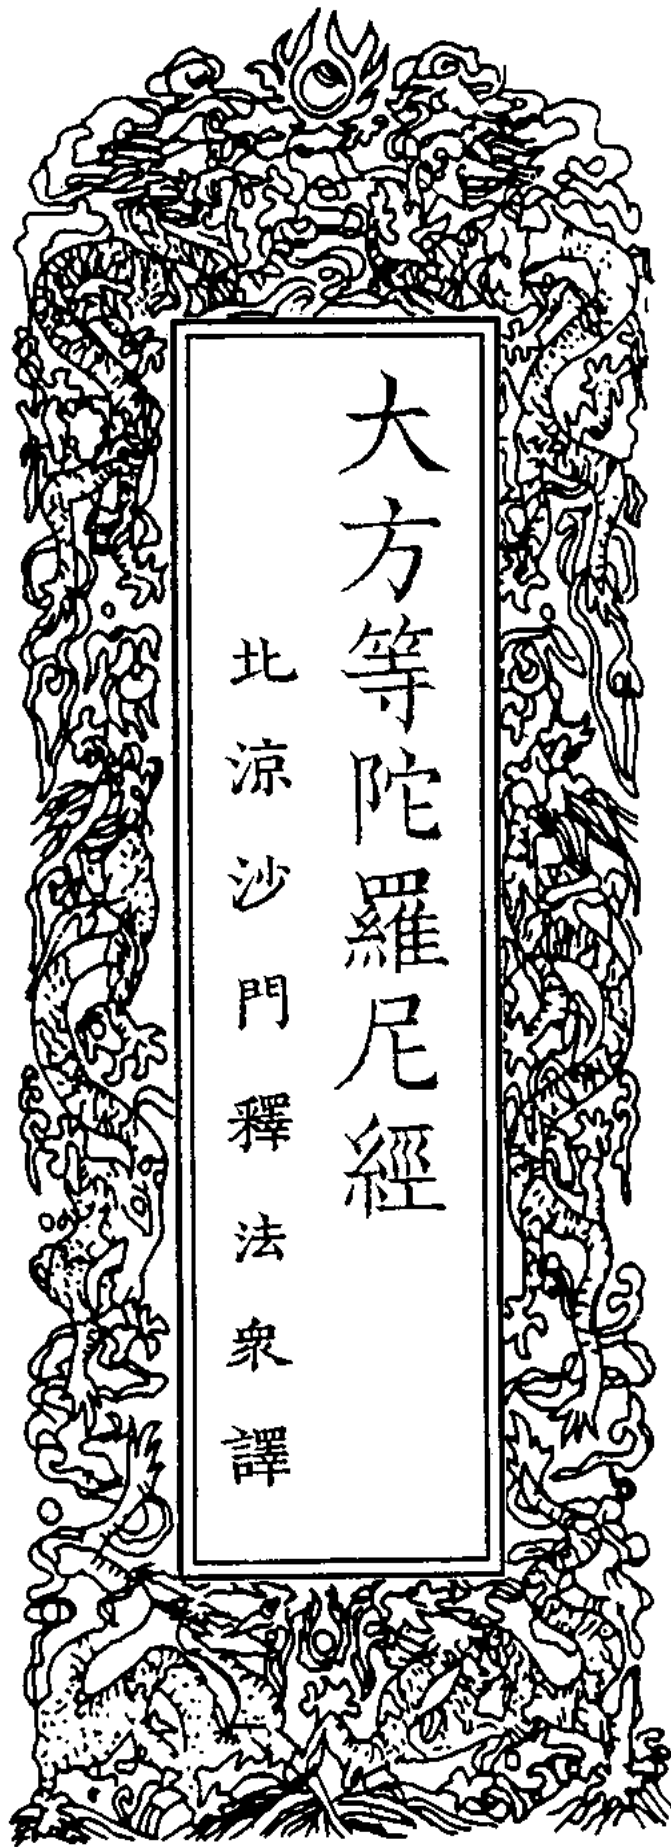 大方等陀羅尼經
北涼沙門釋法衆譯